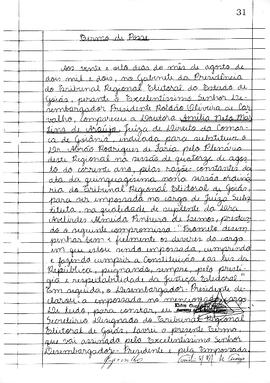 31
Termo de Posse
Aos vinte e oito dias do mês de agosto de
dois mil e dois, no Gabinete da Presidência
do Tribunal Regional Eleitoral do Estado de
Goiás, perante o Excelentíssimo Senhor De-
sembargador Presidente Roldão Oliveira de Car
valho, compareceu a Doutora Amélia Netto Mar
tins de Araújo, Juíza de Direito da Comar-
ca de Goiânia, indicada para substituir o
Dr. Abrão Rodrigues de Faria pelo Plenário
deste Regional na sessão de quatorze de agos-
to do corrente ano, pelas razões constantes da
ata da quinquagésima nona sessão ordiná
ria do Tribunal Regional Eleitoral de Goiás,
para ser empossada no cargo de Juiz Subs
tituta, na qualidade de suplente da Dra.
Avelirdes Almeida Pinheiro de Lemos, prestan-
do o seguinte compromisso: "Prometo desem-
penhar bem e fielmente os deveres do cargo
em que estou sendo empossada, cumprindo
e fazendo cumprir a Constituição e as leis da
República, pugnando, sempre, pelo prestí-
gio e respeitabilidade da Justiça Eleitoral."
Em seguida, o Desembargador-Presidente de-
clarou a empossada no mencionado cargo.
Do lido, para constar, eu
Secretário Designado do Tribunal Regional
Eleitoral de Goiás, lavrei o presente termo,
que vai assinado pelo Excelentíssimo Senhor
Desembargador-Presidente e pela Empossada.